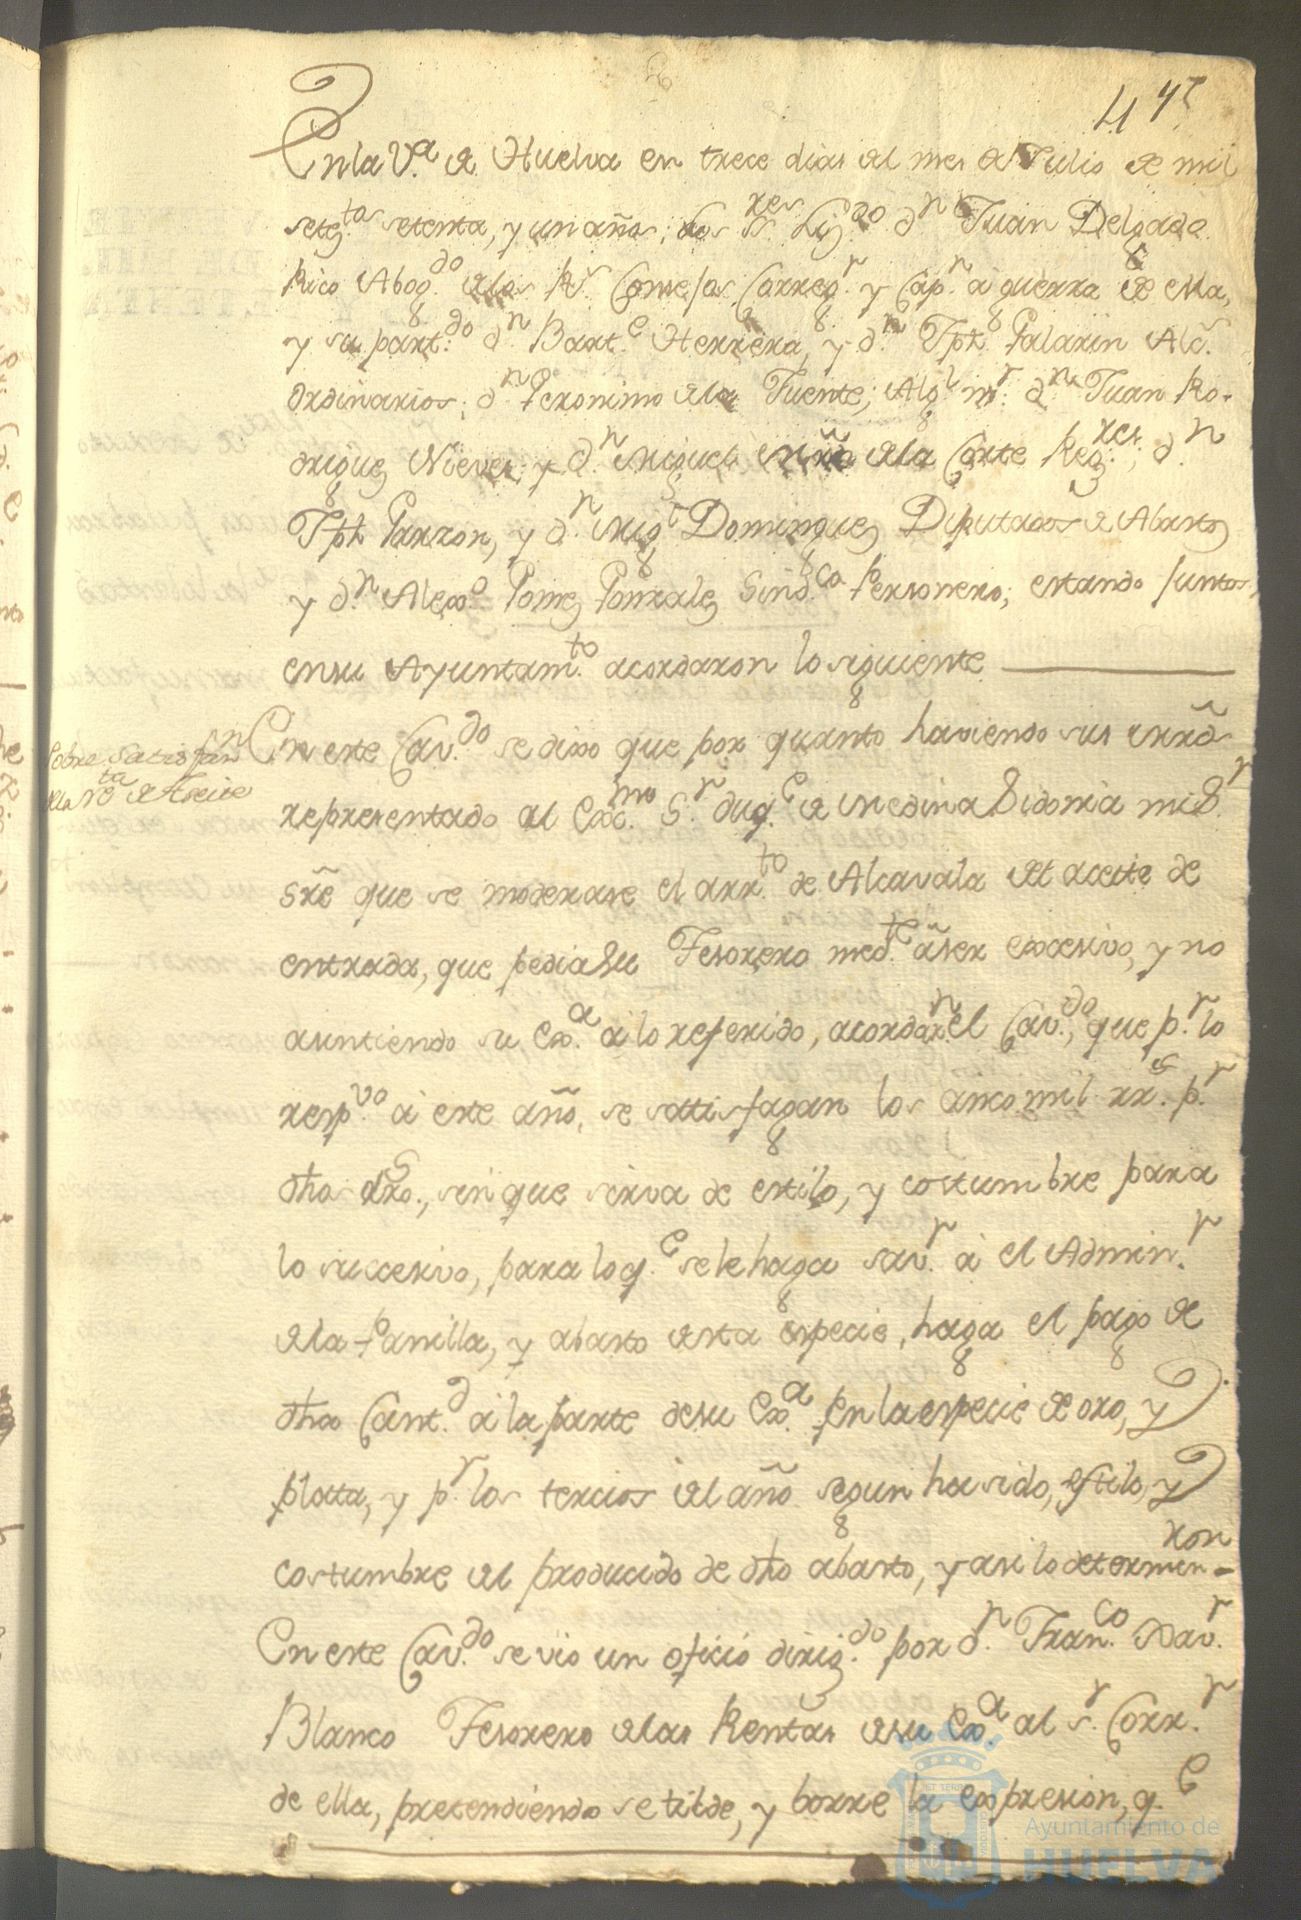 47
En la V.a de Huelva en trece dias del mes de Julio de mil
seteз.tos setenta, y un años; los SS.res Liz.do d.n Juan Delgado
Rico Abog.do de los R.s Consejos Correg.r y Cap.n a guerra de ella,
y su part.do d.n Bart.e Herrera, y d.n Jph. Galarin Alc.s
ordinarios; d.n Geronimo de la Fuente; Alg.l m.r d.n Juan Ro-
driguez Nieves y d.n Miguel de la Corte Reg.res; d.n
Jph Garzon, y d.n Mig.l Dominguez Diputados de Abasto
y d.n Alexo Gomez Gonzalez Sind.co Personero; estando Juntos
en su Ayuntam.to acordaron lo siguiente
Sobre satisfas.n
de la r.ta de Aceite
En este Cav.do se dixo que por quanto haviendo sus mrds
representado al Exc.mo S.r duq.e de Medina Sidonia mi S.r
sre que se moderase el arr.to de Alcavala del aceite de
entrada, que pedia su Tesorero med.te a ser excesivo, y no
asintiendo su Ex.a a lo referido, acordar.n el Cav.do, que p.r lo
resp.vo a este año, se sattisfagan los cinco mil rr.s p.r
dhos dro.s, sin que sirva de estilo, y costumbre para
lo succesivo, para lo q.e se le haga sav.r a el Admin.r
de la Panilla, y abasto desta especie, haga el pago de
dha Cant.d a la parte de su Ex.a en la especie de oro, y
platta, y p.r los tercios del año segun ha sido, estilo, y
costumbre del producido de dho abasto, y asi lo determin-
ron
En este Cav.do se vio un oficio dirig.do por d.n Fran.co Xav.r
Blanco Tesorero de las Rentas de su Ex.a al s.r Corr.r
de ella, pretendiendo se tilde, y borre la expresion, q.e
Ayuntamiento de
HUELVA